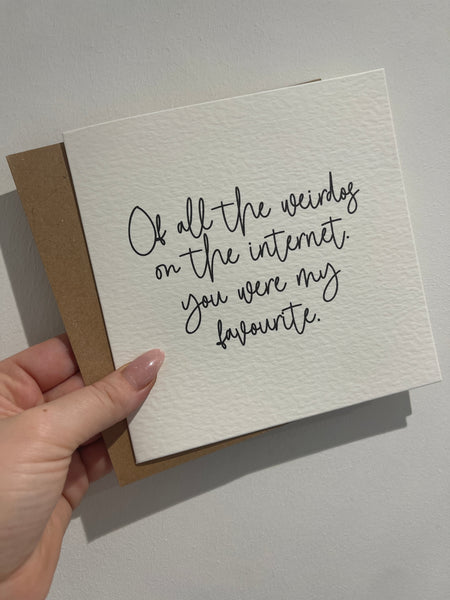 Of all the weirdos
on the internet.
you were my
favourite.